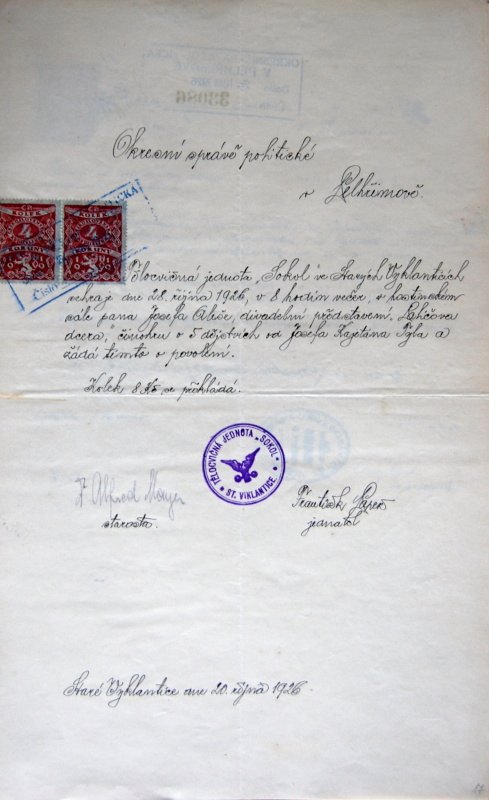 Okresní správě politické
v Pelhřimově.
Tělocvičná jednota „Sokol" ve Starých Vyklanticích
sehraje dne 28. října 1926, v 8 hodin večer, v hostinském
sále pana Josefa divadelní představení „
dcera," činohru o 5 dějstvích od Josefa Kajetána Tyla a
žádá tímto o povolení.
Kolek 8 Kč se přikládá.
TĚLOCVIČNÁ JEDNOTA „SOKOL"
ST. VIKLANTICE
Alfred
František
starosta.
jednatel
Staré Vyklantice dne 20. října 1926.
33086
KOLEK
4
KOLEK
4
17